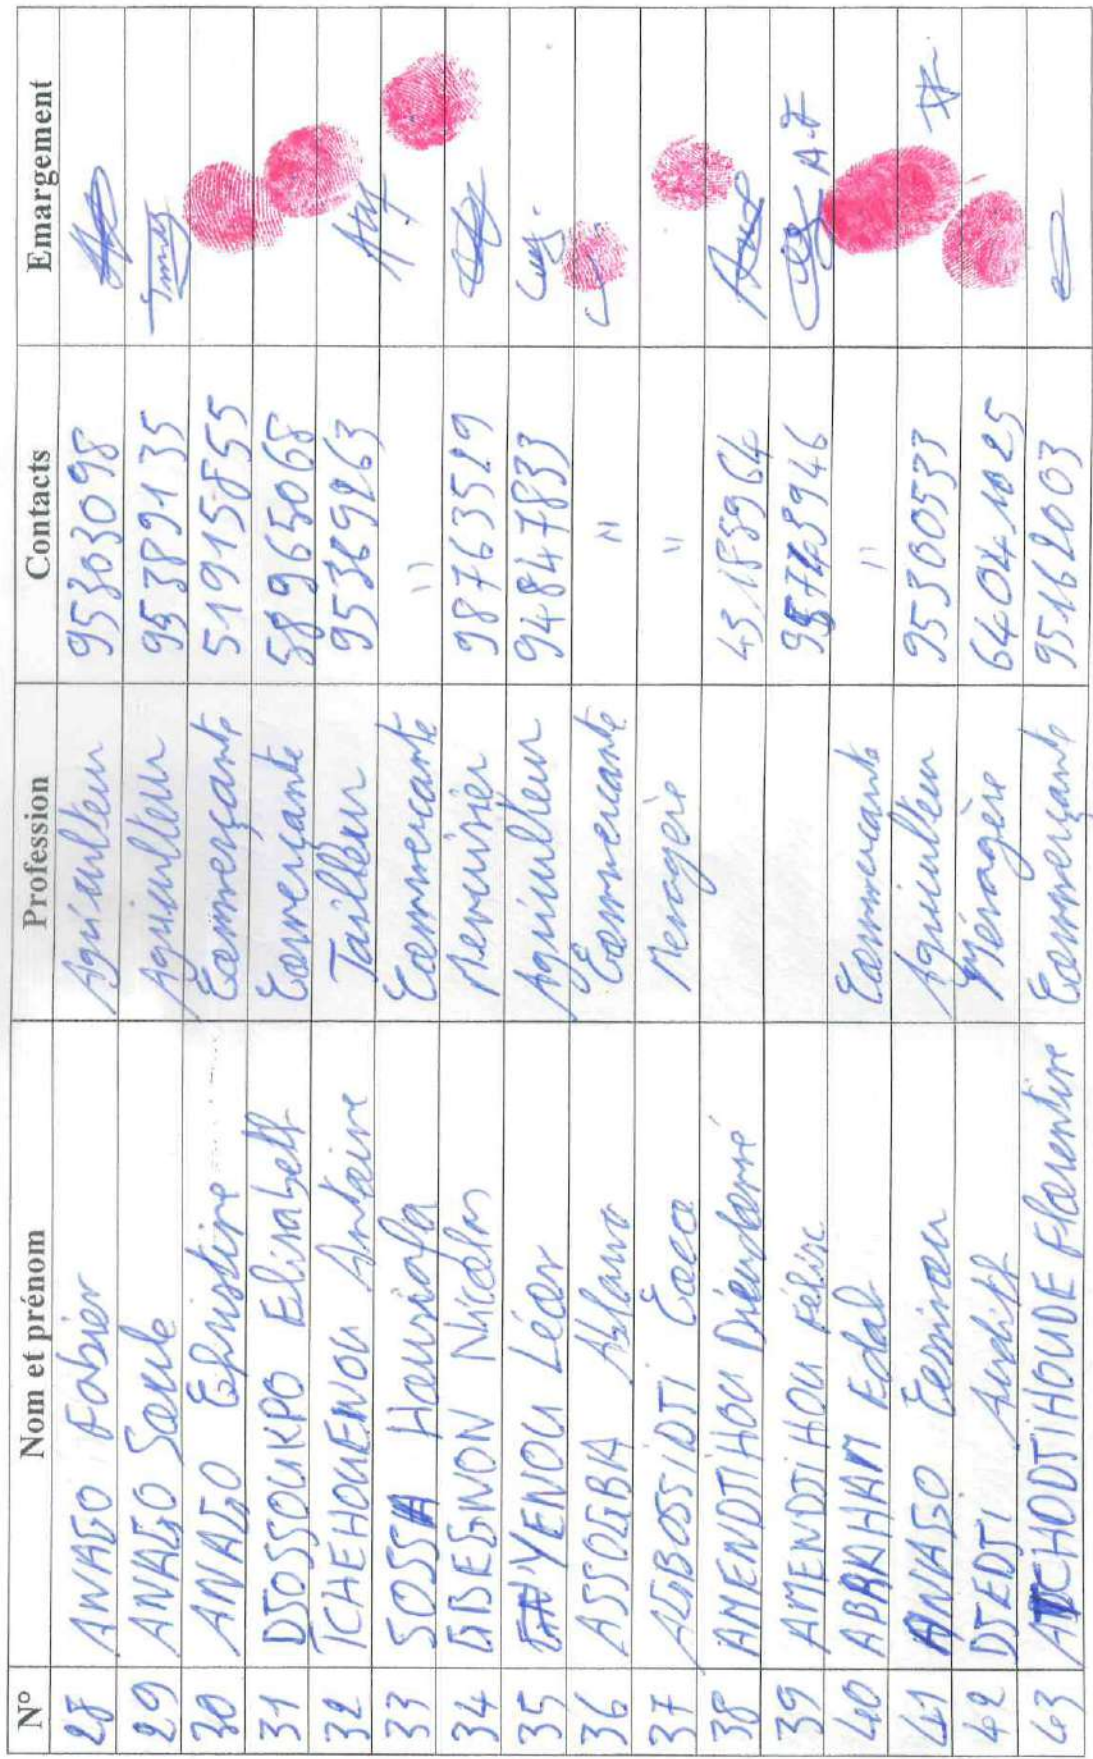 N° Nom et prénom Profession Contacts Emargement
28 ANAGO Fabien Agriculteur 95303098
29 ANAGO Soulé Agriculteur 95389135
30 ANAGO Egnistine Commerçante 51915855
31 DJOSSOUKPO Elisabeth Commerçante 58965068
32 TCHEHOUENOU Antoine Tailleur 95369263
33 SOSSA Hounsiafa Commercante "
34 GBEGNON Nicolas Menuisier 98763529
35 YENOU Léon Agriculteur 94847833
36 ASSOGBA Ablawa Commercante "
37 AGBOSSIDJI Coco Menagère "
38 AMENDJIHOU Dieudonné 43185964
39 AMENDJIHOU Félix
40 ABRAHAM Edal Commercante "
41 ANAGO Agriculteur 95300533
42 DJEDJI Judith Ménagère 64041025
43 TCHODJIHOUDE Florentine Commerçante 95162003